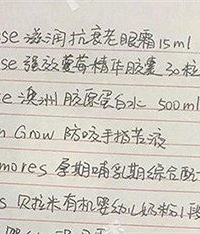 se 滋润抗衰老眼霜 15ml
se 强效蔓莓精华胶囊 30粒
e 澳洲胶原蛋白水 500ml
n Grow 防咬手指苦液
mores 孕期哺乳期综合
s 贝拉米有机婴幼儿奶粉1段